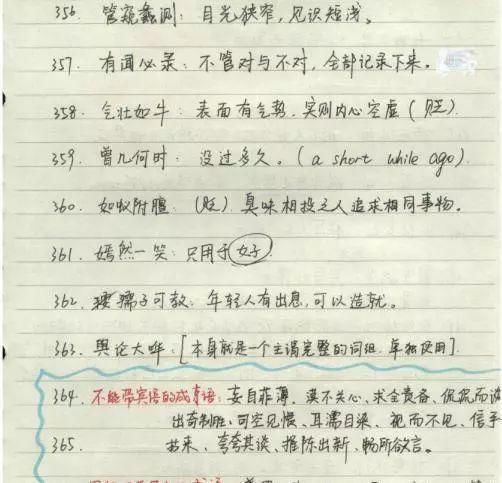 356. 管窥蠡测：目光狭窄，见识短浅。
357. 有闻必录：不管对与不对，全部记录下来。
358. 气壮如牛：表面有气势，实则内心空虚（贬）.
359. 曾几何时：没过多久。（a short while ago）.
360. 如蚁附膻：（贬）. 臭味相投之人追求相同事物。
361. 嫣然一笑：只用于女子.
362. 孺子可教：年轻人有出息，可以造就。
363. 舆论大哗：[本身就是一个主谓完整的词组，单独使用].
364. 不能带宾语的成语：妄自菲薄、漠不关心、求全责备、侃侃而谈
出奇制胜、司空见惯、耳濡目染、视而不见、信手
365. 拈来、夸夸其谈、推陈出新、畅所欲言。